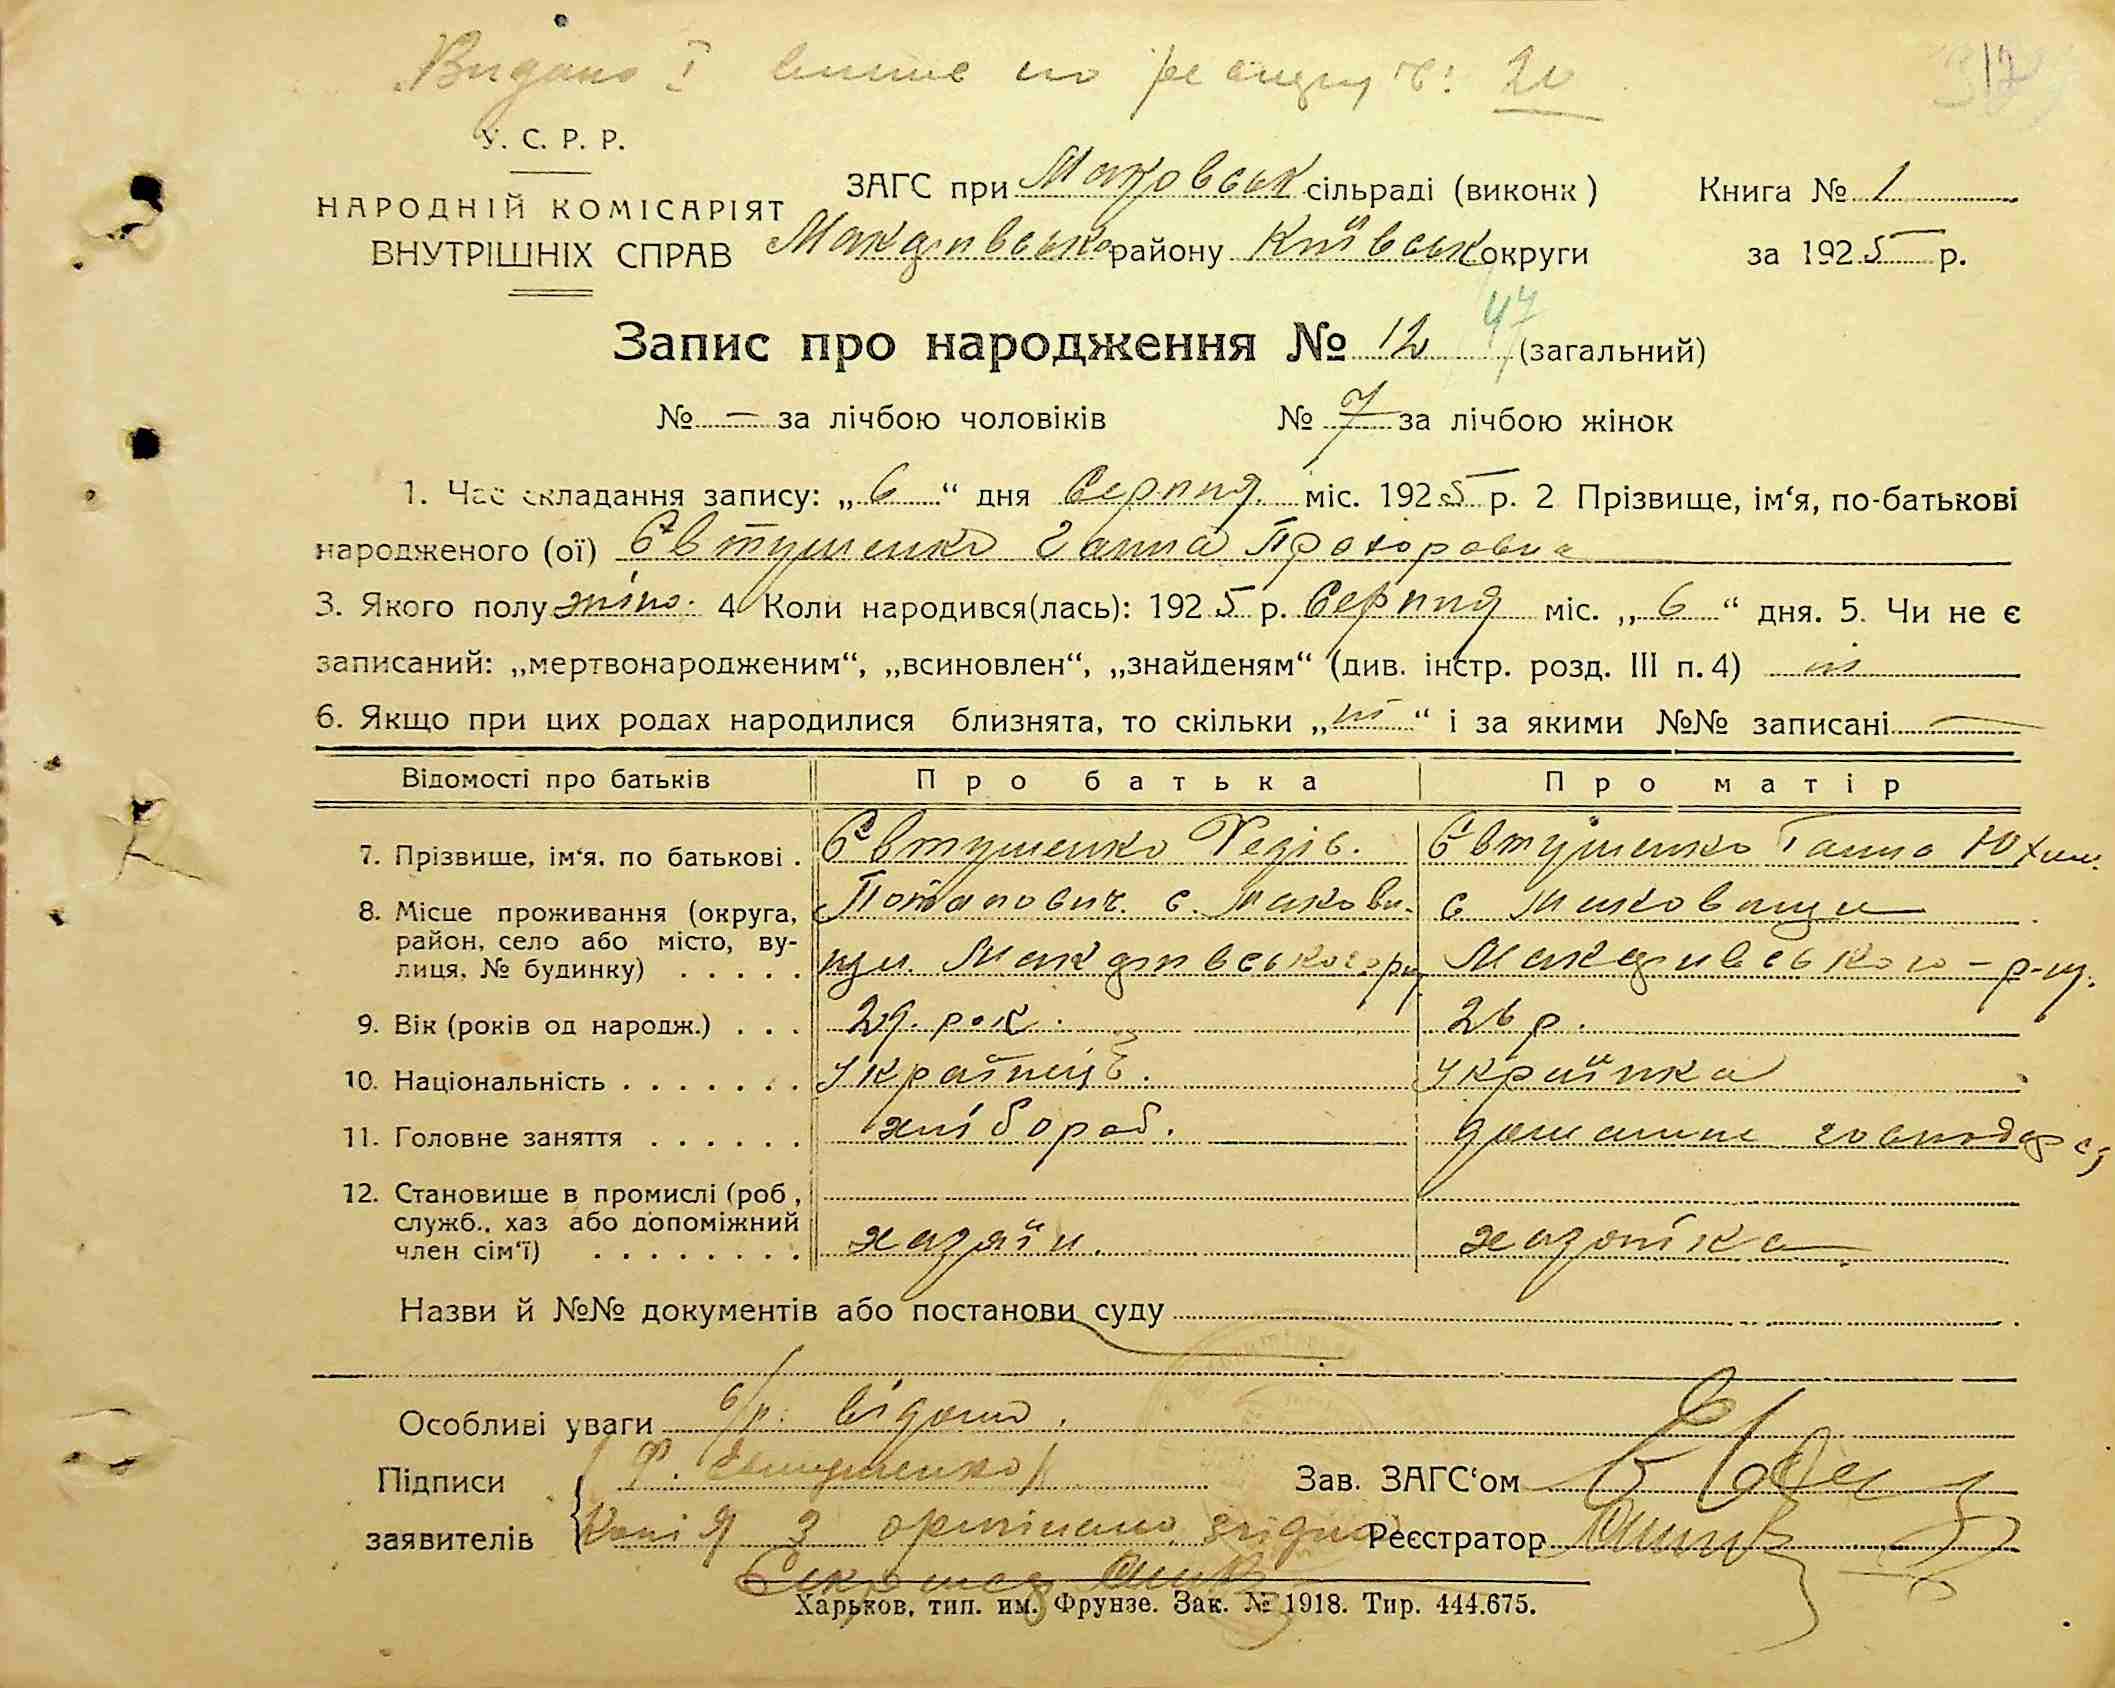 Видано І
317
У. С. Р. Р.
НАРОДНІЙ КОМІСАРІЯТ
ВНУТРІШНІХ СПРАВ
ЗАГС при Маковськ сільраді (виконк)
Книга № 1
Макарівсько району Київськ округи
за 1925 р.
47
Запис про народження № 12 (загальний)
№ — за лічбою чоловіків № 7 за лічбою жінок
1. Час складання запису: „6“ дня Серпня міс. 1925 р. 2 Прізвище, ім‘я, по-батькові
народженого (ої) Євтушенко Ганна Прохоровна
3. Якого полу жіно. 4 Коли народився(лась): 1925 р. Серпня міс. „6“ дня. 5. Чи не є
записаний: „мертвонародженим“, „всиновлен“, „знайденям“ (див. інстр. розд. III п. 4) ні
6. Якщо при цих родах народилися близнята, то скільки „ні“ і за якими №№ записані —
Відомості про батьків Про батька Про матір
7. Прізвище, ім‘я, по батькові . Євтушенко Хедів. Євтушенко Ганна Юхим.
8. Місце проживання (округа, район, село або місто, вулиця, № будинку) . . . . .
Потапович. с. Макови-
щи. Макарівського р-
с Маковищи
Макарівського - р-щ.
9. Вік (років од народж.) . . . 29. рок. 26 р.
10. Національність . . . . . . . українець. українка
11. Головне заняття . . . . . . хлібороб. домашнє господарс
12. Становище в промислі (роб, служб., хаз або допоміжний член сім‘ї) . . . . . . . . хазяїн. хазяїка
Назви й №№ документів або постанови суду
Особливі уваги б/р. відомо.
Підписи
заявителів
Ф. Євтушенко
Копія з оригіналом згідно
Секретар
Зав. ЗАГС‘ом
Реєстратор
Харьков, тип. им. Фрунзе. Зак. № 1918. Тир. 444.675.